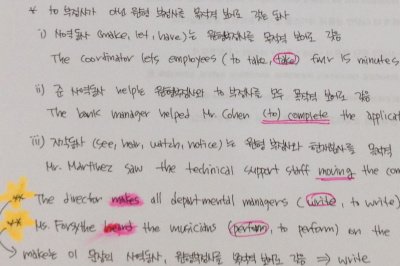 * to 부정사가 아닌 원형 부정사를 목적격 보어로 갖는 동사
i) 사역동사 (make, let, have)는 원형부정사를 목적격 보어로 갖음
The coordinator lets employees (to take, take) four 15 minutes
ii) 준 사역동사 help는 원형부정사와 to 부정사를 모두 목적격 보어로 갖음
The bank manager helped Mr. Cohen (to) complete the applicat
iii) 지각동사 (see, hear, watch, notice)는 원형 부정사와 현재분사를 목적격
Mr. Martinez saw the technical support staff moving the com
** The director makes all departmental managers (write, to write)
** Ms. Forsythe heard the musicians (perform, to perform) on the
→ make는 이 문장의 사역동사, 원형부정사를 목적격 보어로 갖음 ⇒ write